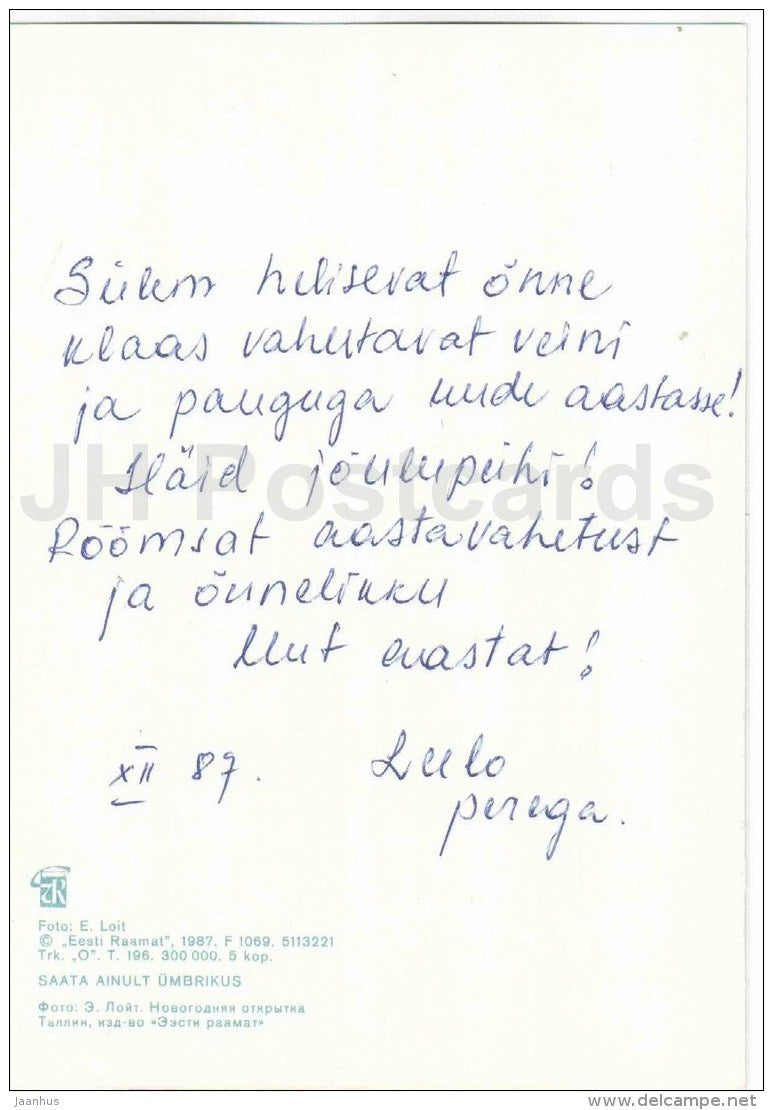 Sülem helisevat õnne
klaas vahutavat veini
ja pauguga uude aastasse!
Häid jõulupühi!
Rõõmsat aastavahetust
ja õnnelikku
Uut aastat!
XII 87.
perega.
JH Postcards
Foto: E. Loit
© „Eesti Raamat”, 1987. F 1069. 5113221
Trk. „O”. T. 196. 300 000. 5 kop.
SAATA AINULT ÜMBRIKUS
Фото: Э. Лойт. Новогодняя открытка
Таллин, изд-во «Ээсти раамат»
Jaanhus
www.delcampe.net